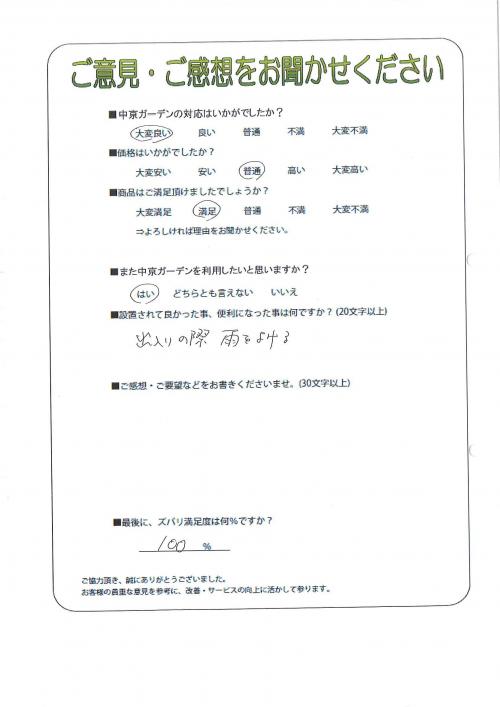 ご意見・ご感想をお聞かせください
■中京ガーデンの対応はいかがでしたか？
大変良い 良い 普通 不満 大変不満
■価格はいかがでしたか？
大変安い 安い 普通 高い 大変高い
■商品はご満足頂けましたでしょうか？
大変満足 満足 普通 不満 大変不満
⇒よろしければ理由をお聞かせください。
■また中京ガーデンを利用したいと思いますか？
はい どちらとも言えない いいえ
■設置されて良かった事、便利になった事は何ですか？(20文字以上)
出入りの際 雨をよける
■ご感想・ご要望などをお書きくださいませ。(30文字以上)
■最後に、ズバリ満足度は何％ですか？
100 %
ご協力頂き、誠にありがとうございました。
お客様の貴重な意見を参考に、改善・サービスの向上に活かして参ります。